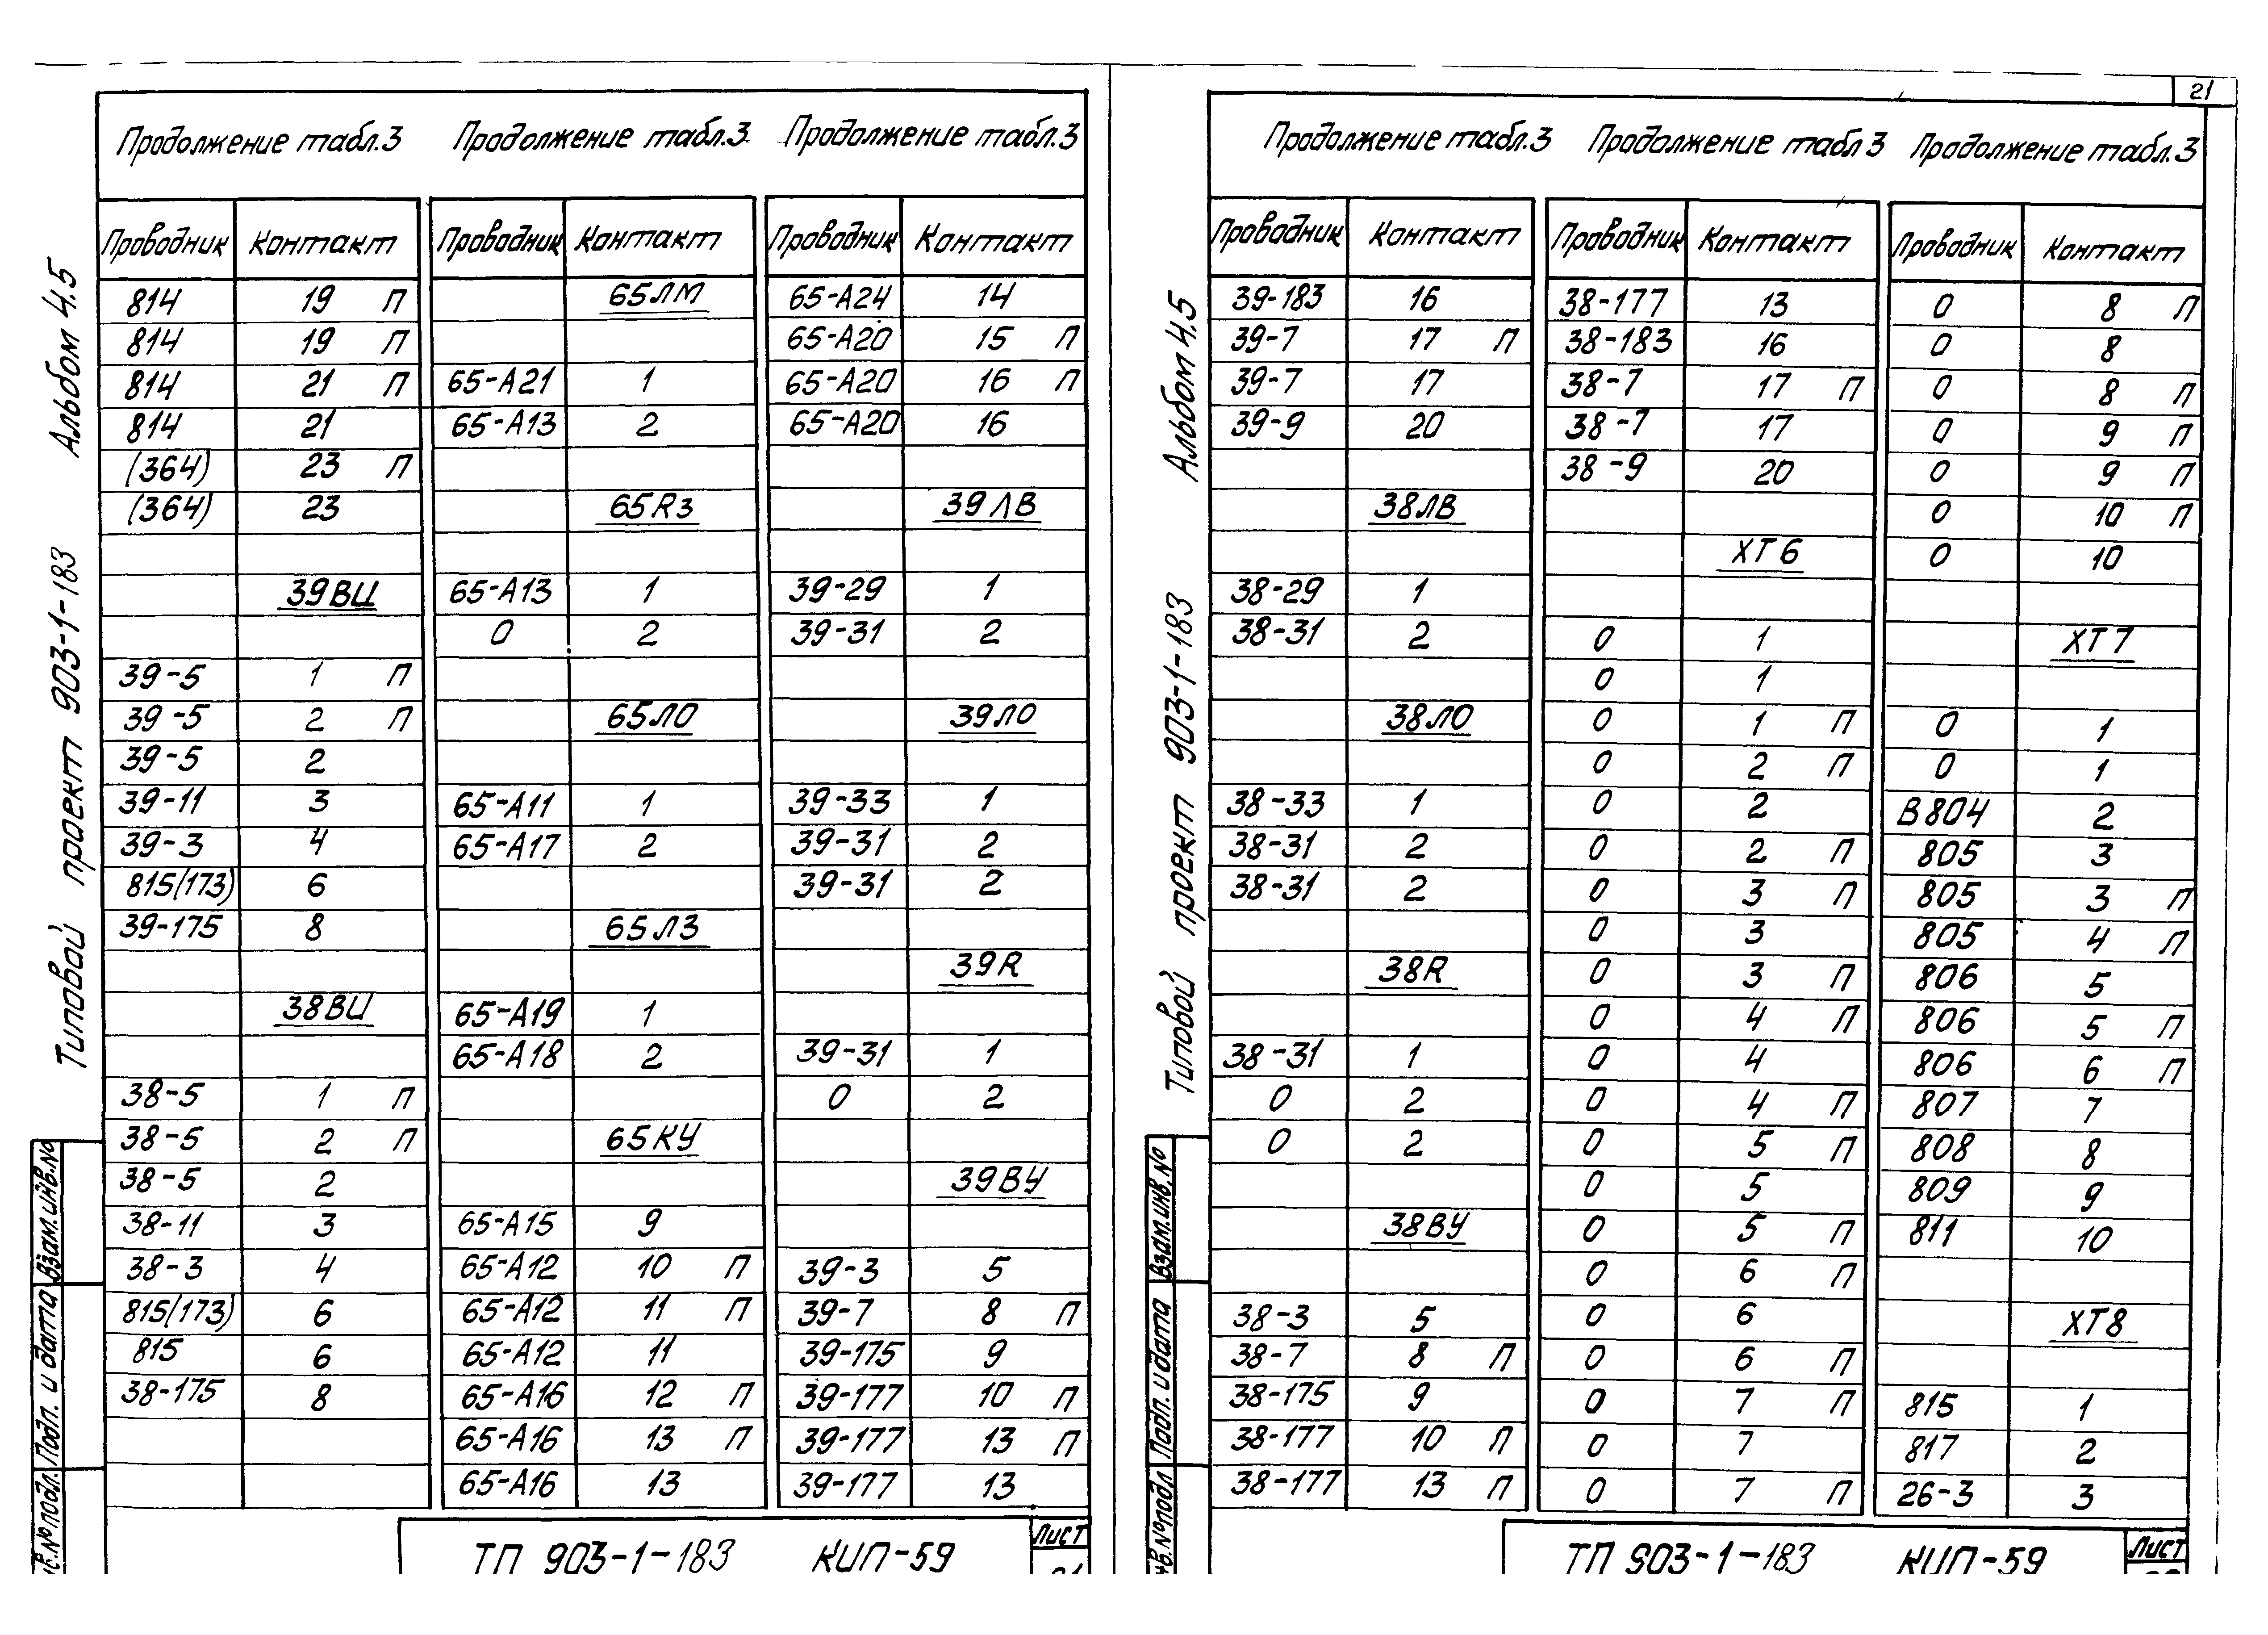 21
Альбом 4.5
Типовой проект 903-1-183
Взам.инв.№
Подп. и дата
Продолжение табл.3
Проводник Контакт
814 19 П
814 19 П
814 21 П
814 21
(364) 23 П
(364) 23
39ВЦ
39-5 1 П
39-5 2 П
39-5 2
39-11 3
39-3 4
815(173) 6
39-175 8
38ВЦ
38-5 1 П
38-5 2 П
38-5 2
38-11 3
38-3 4
815(173) 6
815 6
38-175 8
Продолжение табл.3
Проводник Контакт
65ЛМ
65-А21 1
65-А13 2
65Rз
65-А13 1
0 2
65ЛО
65-А11 1
65-А17 2
65ЛЗ
65-А19 1
65-А18 2
65КУ
65-А15 9
65-А12 10 П
65-А12 11 П
65-А12 11
65-А16 12 П
65-А16 13 П
65-А16 13
Продолжение табл.3
Проводник Контакт
65-А24 14
65-А20 15 П
65-А20 16 П
65-А20 16
39ЛВ
39-29 1
39-31 2
39ЛО
39-33 1
39-31 2
39-31 2
39R
39-31 1
0 2
39ВУ
39-3 5
39-7 8 П
39-175 9
39-177 10 П
39-177 13 П
39-177 13
ТП 903-1-183 КИП-59
Лист
Альбом 4.5
Типовой проект 903-1-183
Взам.инв.№
Подп. и дата
Продолжение табл.3
Проводник Контакт
39-183 16
39-7 17 П
39-7 17
39-9 20
38ЛВ
38-29 1
38-31 2
38ЛО
38-33 1
38-31 2
38-31 2
38R
38-31 1
0 2
0 2
38ВУ
38-3 5
38-7 8 П
38-175 9
38-177 10 П
38-177 13 П
Продолжение табл 3
Проводник Контакт
38-177 13
38-183 16
38-7 17 П
38-7 17
38-9 20
ХТ6
0 1
0 1
0 1 П
0 2 П
0 2
0 2 П
0 3 П
0 3
0 3 П
0 4 П
0 4
0 4 П
0 5 П
0 5
0 5 П
0 6 П
0 6
0 6 П
0 7 П
0 7
0 7 П
Продолжение табл.3
Проводник Контакт
0 8 П
0 8
0 8 П
0 9 П
0 9 П
0 10 П
0 10
ХТ7
0 1
0 1
В804 2
805 3
805 3 П
805 4 П
806 5
806 5 П
806 6 П
807 7
808 8
809 9
811 10
ХТ8
815 1
817 2
26-3 3
ТП 903-1-183 КИП-59
Лист